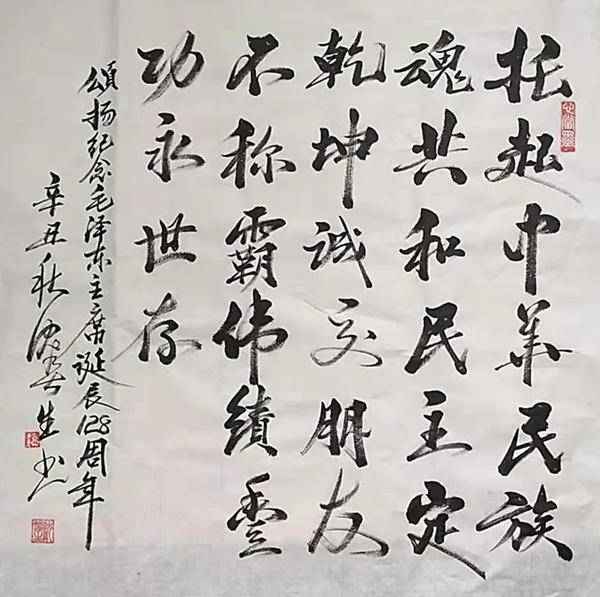 托起中華民族
魂共和民主定
乾坤诚交朋友
不称霸伟績豐
功永世存
頌扬纪念毛泽东主席诞辰128周年
辛丑秋生书